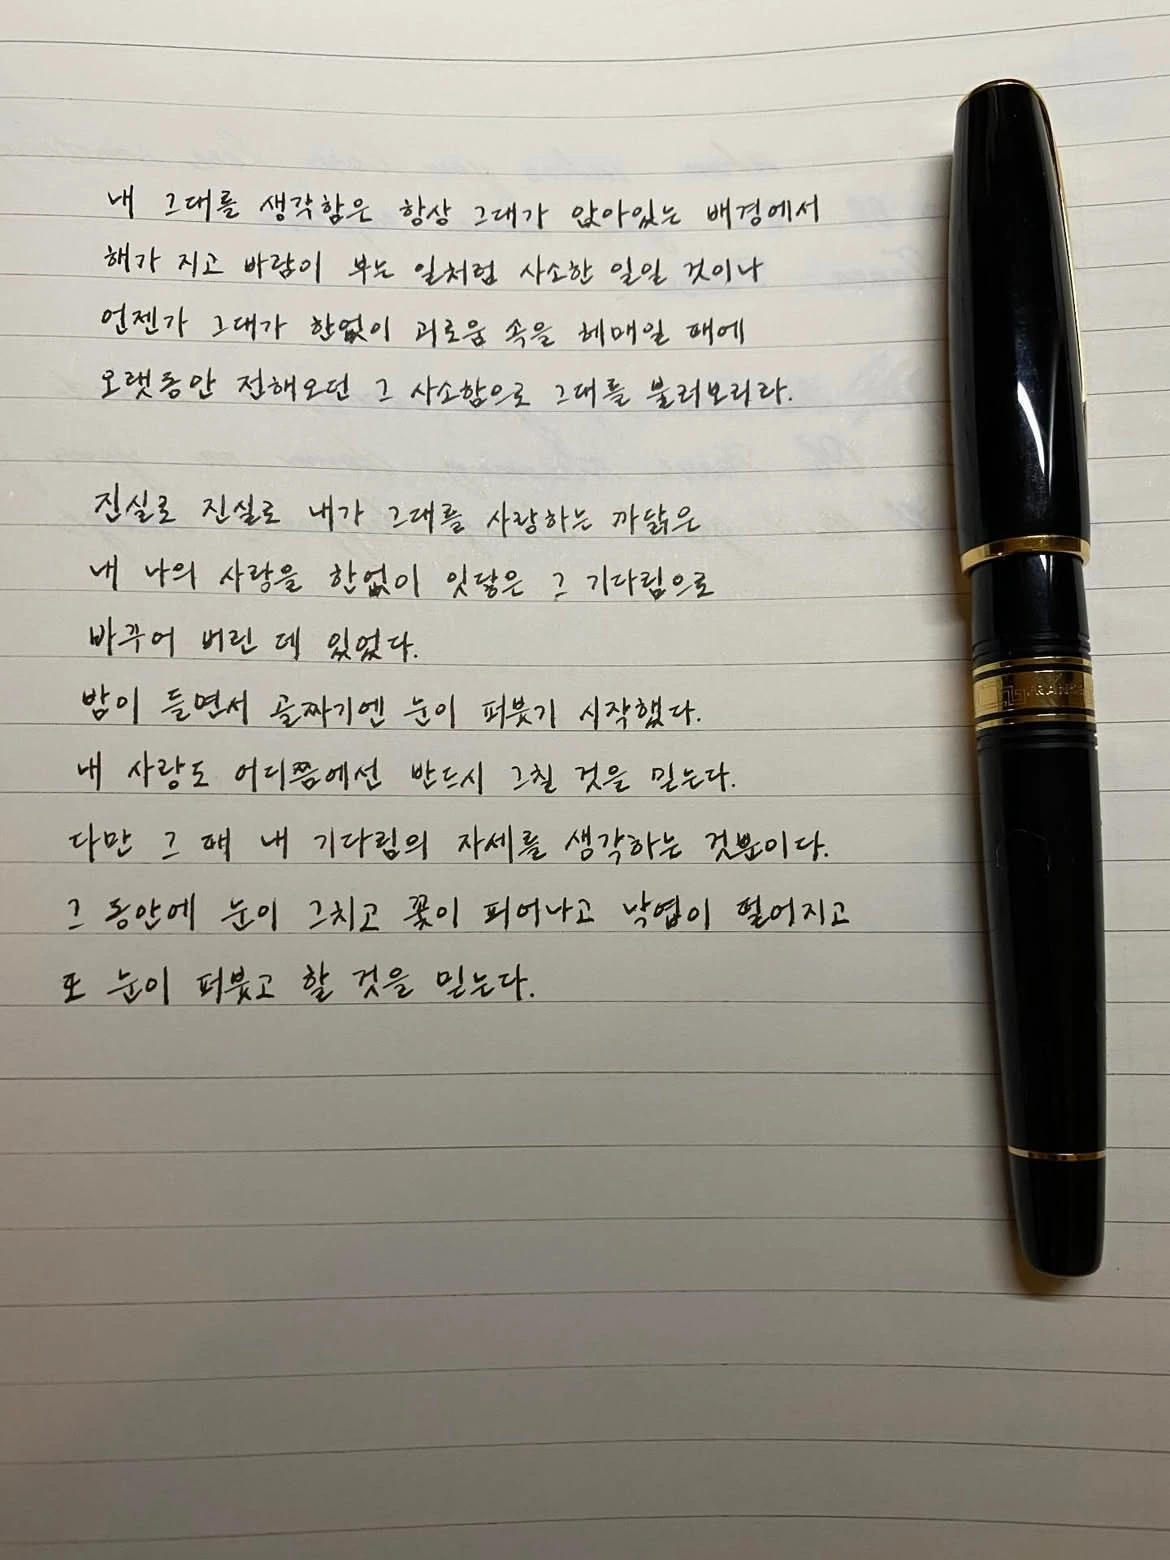 내 그대를 생각함은 항상 그대가 앉아있는 배경에서
해가 지고 바람이 부는 일처럼 사소한 일일 것이나
언젠가 그대가 한없이 괴로움 속을 헤매일 때에
오랫동안 전해오던 그 사소함으로 그대를 불러보리라.
진실로 진실로 내가 그대를 사랑하는 까닭은
내 나의 사랑을 한없이 잇닿은 그 기다림으로
바꾸어 버린 데 있었다.
밤이 들면서 골짜기엔 눈이 퍼붓기 시작했다.
내 사랑도 어디쯤에선 반드시 그칠 것을 믿는다.
다만 그 때 내 기다림의 자세를 생각하는 것뿐이다.
그 동안에 눈이 그치고 꽃이 피어나고 낙엽이 떨어지고
또 눈이 퍼붓고 할 것을 믿는다.